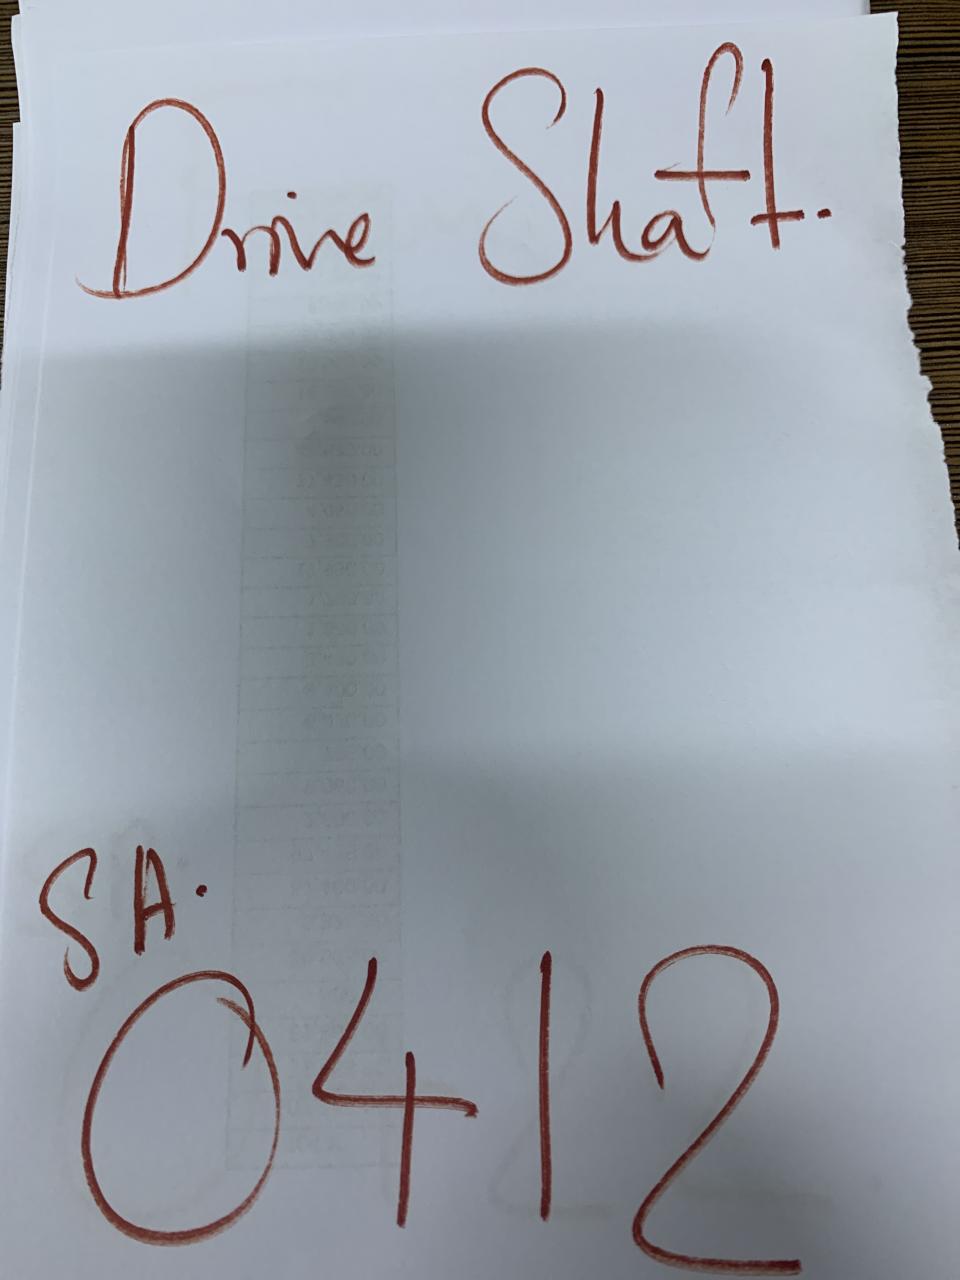 Drive Shaft.
SA.
0412